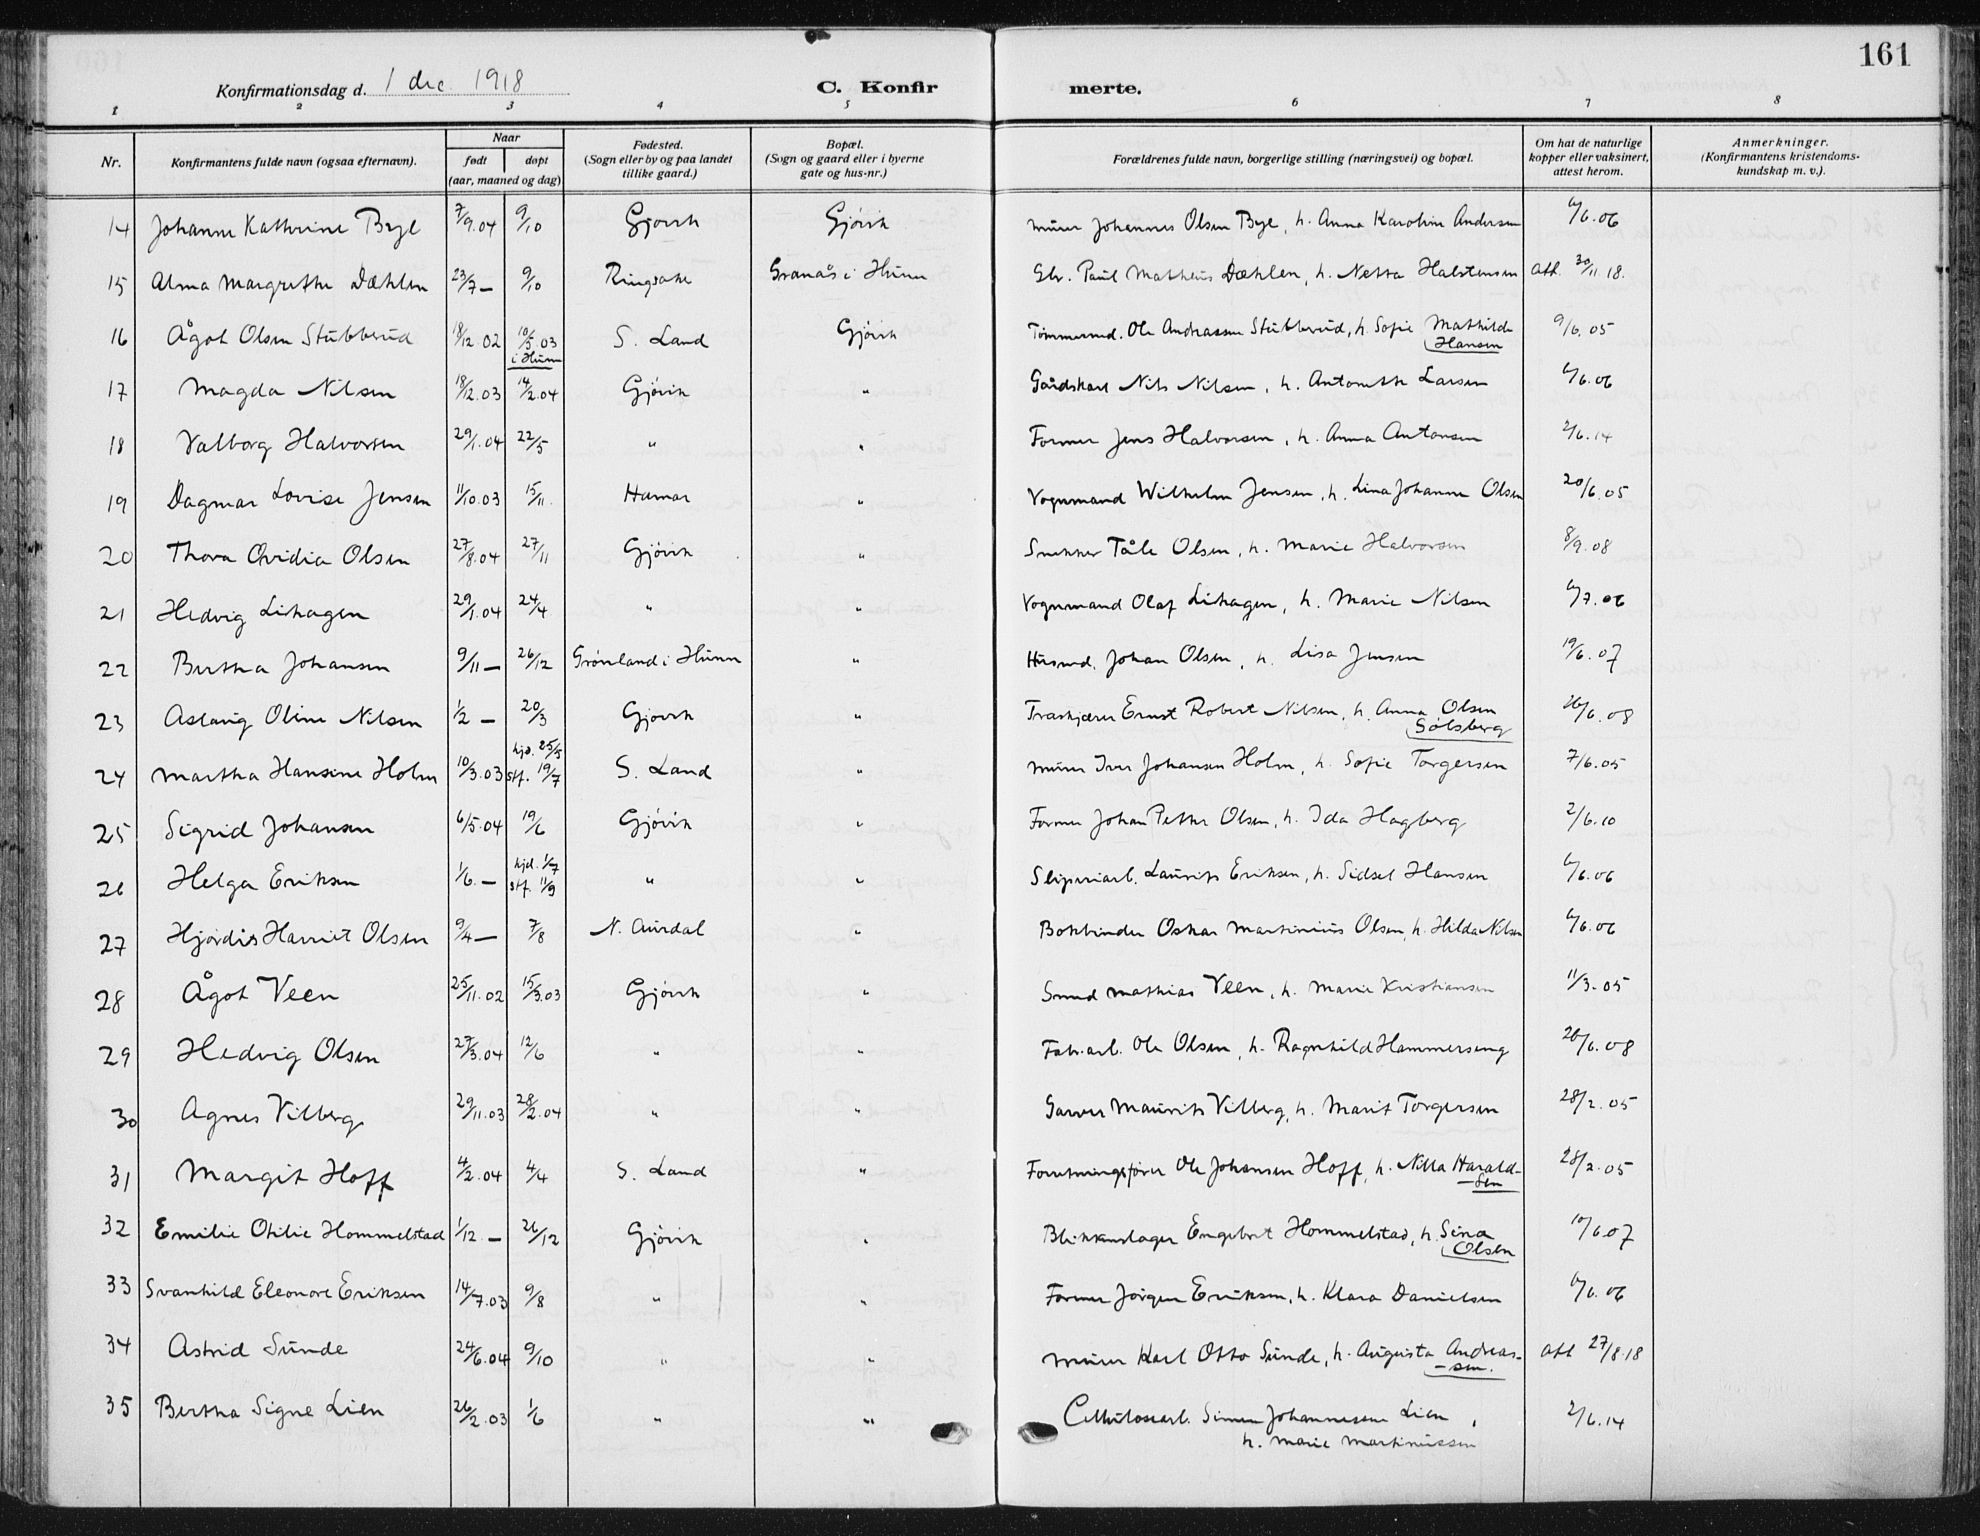 161
Konfirmationsdag d. 1 dec. 1918
C. Konfir merte.
1 2 3 4 5 6 7 8
Nr. Konfirmantens fulde navn (ogsaa efternavn). Naar født døpt (aar, maaned og dag) Fødested. (Sogn eller by og paa landet tillike gaard.) Bopæl. (Sogn og gaard eller i byerne gate og hus-nr.) Forældrenes fulde navn, borgerlige stilling (næringsvei) og bopæl. Om hat de naturlige kopper eller vaksinert, attest herom. Anmerkninger. (Konfirmantens kristendoms-kundskap m. v.).
14 Johanne Kathrine Bye 7/9.04 9/10 Gjøvik Gjøvik Murer Johannes Olsen Bye, h. Anna Karoline Andersen 6/6.06
15 Alma Margrethe Dæhlen 23/7 – 9/10 Ringsake Granås i Hunn Elv. Paul Matheus Dæhlen, h. Netta Halstensen att. 30/11.18.
16 Ågot Olsen Stubberud 18/12.02 10/5.03 i Hunn S. Land Gjøvik Tømmermd. Ole Andreassen Stubberud, h. Sofie Mathilde Hansen 9/6.05
17 Magda Nilsen 18/12.03 14/2.04 Gjøvik " Gårdskarl Nils Nilsen, h. Antonette Larsen 6/6.06
18 Valborg Halvorsen 29/1.04 22/5 " " Former Jens Halvorsen, h. Anna Antonsen 2/6.14
19 Dagmar Lovise Jensen 11/10.03 15/11. Hamar " Vognmand Wilhelm Jensen, h. Lina Johanne Olsen 20/6.05
20 Thora Ovidia Olsen 27/8.04 27/11 Gjøvik " Snekker Tåle Olsen, h. Marie Halvorsen 8/9.08
21 Hedvig Lihagen 29/1.04 24/4 " " Vognmand Olaf Lihagen, h. Marie Nilsen 6/7.06
22 Bertha Johansen 9/11 – 26/12 Grønland i Hunn " Husmd. Johan Olsen, h. Lisa Jensen 19/6.07
23 Aslaug Oline Nilsen 1/2 – 20/3 Gjøvik " Træskjærer Ernst Robert Nilsen, h. Anna Olsen Solsberg 26/6.08
24 Martha Hansine Holm 10/3.03 hjd. 25/5 stf. 19/7 S. Land " Murer Iver Johansen Holm, h. Sofie Torgersen 7/6.05
25 Sigrid Johansen 6/5.04 19/6 Gjøvik " Former Johan Petter Olsen, h. Ida Hagberg 2/6.10
26 Helga Eriksen 1/6. – hjd. 1/7 stf. 11/9 " " Sliperiarb. Laurits Eriksen, h. Sidsel Hansen 6/6.06
27 Hjørdis Harriet Olsen 9/4 – 7/8 N. Aurdal " Bokbinder Oskar Martinius Olsen, h. Hilda Nilsen 6/6.06
28 Ågot Veen 25/11.02 15/3.03 Gjøvik " Smed Mathias Veen, h. Marie Kristiansen 11/3.05
29 Hedvig Olsen 27/3.04 12/6 " " Fabr.arb. Ole Olsen, h. Ragnhild Hammerseng 26/6.08
30 Agnes Vilberg 29/11.03 28/2.04 " " Garver Maurits Vilberg, h. Marit Torgersen 28/2.05
31 Margit Hoff 4/2.04 4/4 S. Land " Forretningsfører Ole Johansen Hoff, h. Nilla Harald-sen 28/2.05
32 Emilie Otilie Hommelstad 1/12 – 26/12 Gjøvik " Blikkenslager Engebret Hommelstad, h. Sina Olsen 10/6.07
33 Svanhild Eleonore Eriksen 14/7.03 9/8 " " Former Jørgen Eriksen, h. Klara Danielsen 6/6.06
34 Astrid Sunde 24/6.04 9/10 " " Murer Karl Otto Sunde, h. Augusta Andreas-sen. att 27/8.18
35 Bertha Signe Lien 26/2.03 1/6 " " Cellulosearb. Simen Johannessen Lien,
h. Marie Martinussen 2/6.14